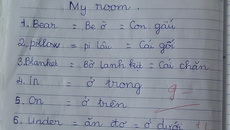 My room.
1. Bear = Be ơ = Con gấu
2. pillow = pi lâu = Cái gối
3. Blanket = Bờ lanh kịt = Cái chăn
4. In = ở trong
5. On = ở trên
6. Under = ăn đơ = ở dưới